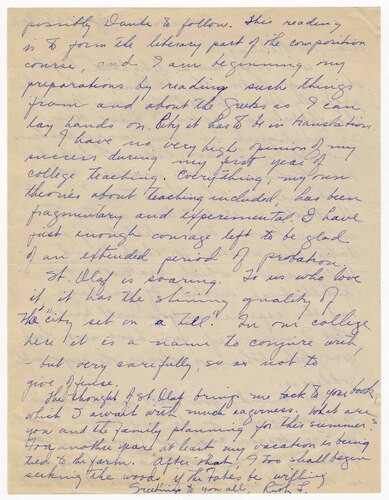 possibly Dante to follow. This reading
is to form the literary part of the composition
course, and I am beginning my
preparations by reading such things
from and about the Greeks as I can
lay hands on. Pity it has to be in translation.
I have no very high opinion of my
success during my first year of
college teaching. Everything, my own
theories about teaching included, has been
fragmentary and experimental. I have
just enough courage left to be glad
of an extended period of probation.
St. Olaf is soaring. To us who love
it, it has the shining quality of
the "city set on a hill." In our college
here it is a name to conjure with,
- but very carefully, so as not to
give offense.
The thought of St. Olaf brings me back to your book
which I await with much eagerness. What are
you and the family planning for this summer?
For another year at least my vacation is being
tied to the farm. After that I too shall begin
seeking the woods, if the fates be willing.
Greetings to you all,